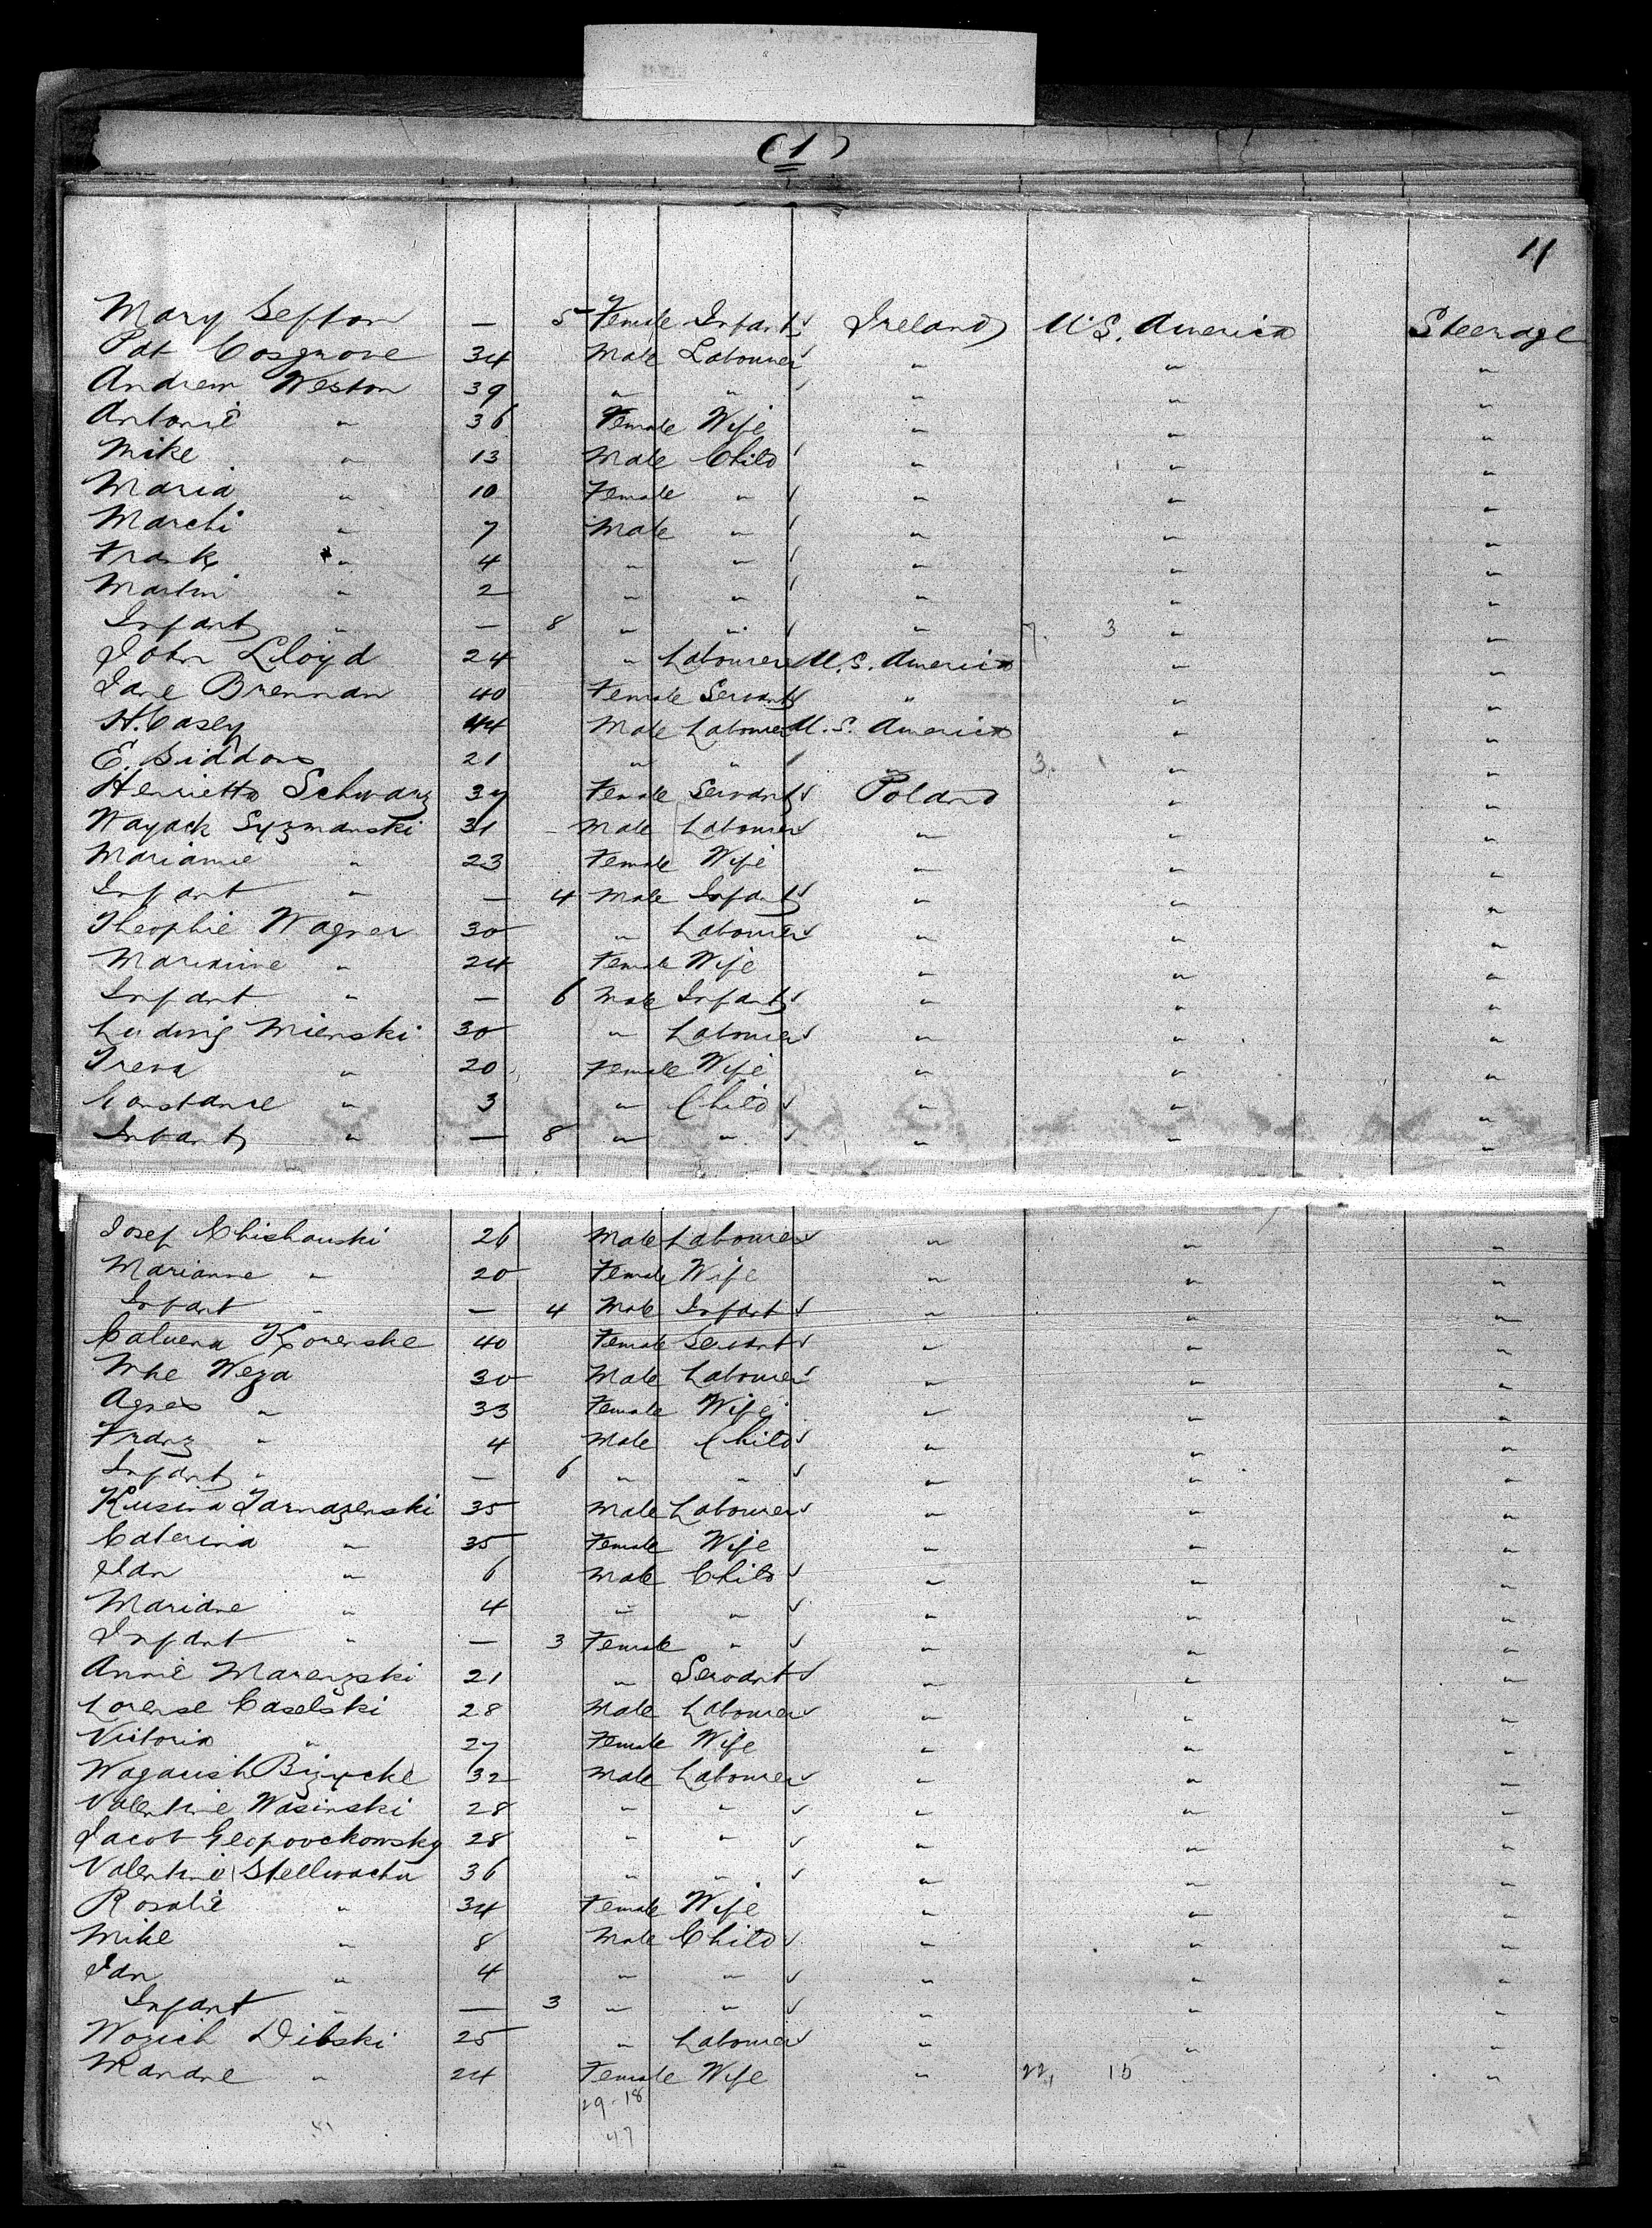 (1)
11
Mary Sefton — 5 Female Infant Ireland U.S. America Steerage
Pat Cosgrove 34 Male Labourer " " "
Andrew Weston 39 " " " " "
Antonie " 36 Female Wife " " "
Mike " 13 Male Child " " "
Maria " 10 Female " " " "
Marchi " 7 Male " " " "
Frank " 4 " " " " "
Martin " 2 " " " " "
Infant " — 8 " " " 7. 3 " "
John Lloyd 24 " Labourer U.S. America " "
Jane Brennan 40 Female Servant " " "
H. Casey 44 Male Labourer U.S. America " "
E. Siddons 21 " " 3. " "
Henrietta Schwarz 37 Female Servant Poland " "
Wayack Syzmanski 31 - Male Labourer " " "
Marianne " 23 Female Wife " " "
Infant " — 4 Male Infant " " "
Theophie Wagner 30 " Labourer " " "
Marianne " 24 Female Wife " " "
Infant " — 6 Male Infant " " "
Ludwig Mienski 30 " Labourer " " "
Irena " 20 Female Wife " " "
Constance " 3 " Child " " "
Infant " — 8 " " " " "
Josef Chichauski 26 Male Labourer " " "
Marianne " 20 Female Wife " " "
Infant " — 4 Male Infant " " "
40 Female Servant " " "
Weza 30 Male Labourer " " "
Agnes " 33 Female Wife " " "
Franz " 4 Male Child " " "
Infant " — 6 " " " " "
35 Male Labourer " " "
Caterina " 35 Female Wife " " "
Jan " 6 Male Child " " "
Mariane " 4 " " " " "
Infant " — 3 Female " " " "
Annie Marenzski 21 " Servant " " "
Lorense Caselski 28 Male Labourer " " "
Victoria " 27 Female Wife " " "
32 Male Labourer " " "
Valentine Wasinski 28 " " " " "
Jacob 28 " " " " "
Valentine Stellwacha 36 " " " " "
Rosalie " 34 Female Wife " " "
Mike " 8 Male Child " " "
Jan " 4 " " " " "
Infant " — 3 " " " " "
Wozich Dibski 25 " Labourer " " "
Mariane " 24 Female Wife " 22, 15 " "
29-18
47